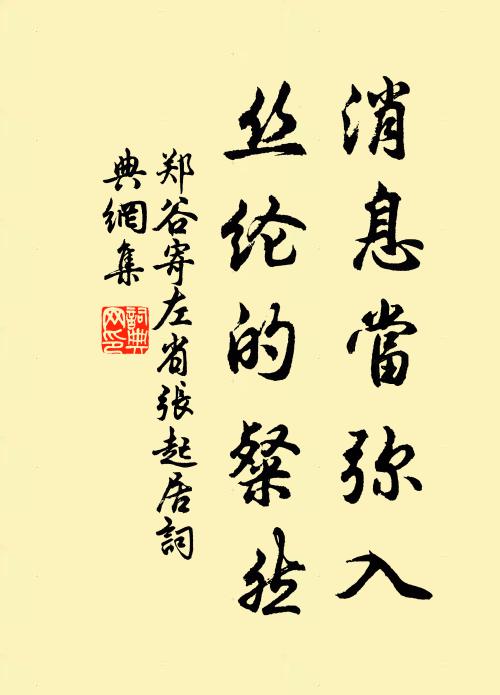 消息當弥入
丝纶的粲然
郑谷寄左省張起居詞
典網集
詞典网印